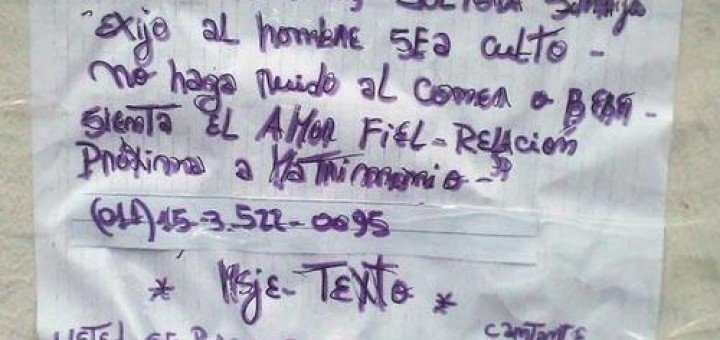 exijo al hombre sea culto -
no haga ruido al comer o beber -
sienta el amor fiel - relación
próxima a matrimonio -
(011) 15-3.522-0095
* Msje - Texto *
cantante